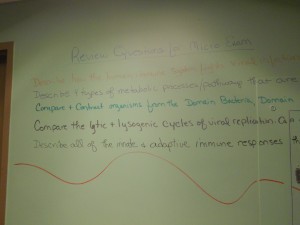 Review Questions for Micro Exam
Describe how the human immune system
Describe 4 types of metabolic processes/pathways that are
Compare + Contrast organisms from the Domain Bacteria, Domain
Compare the lytic + lysogenic cycles of viral replication. Can
Describe all of the innate & adaptive immune responses